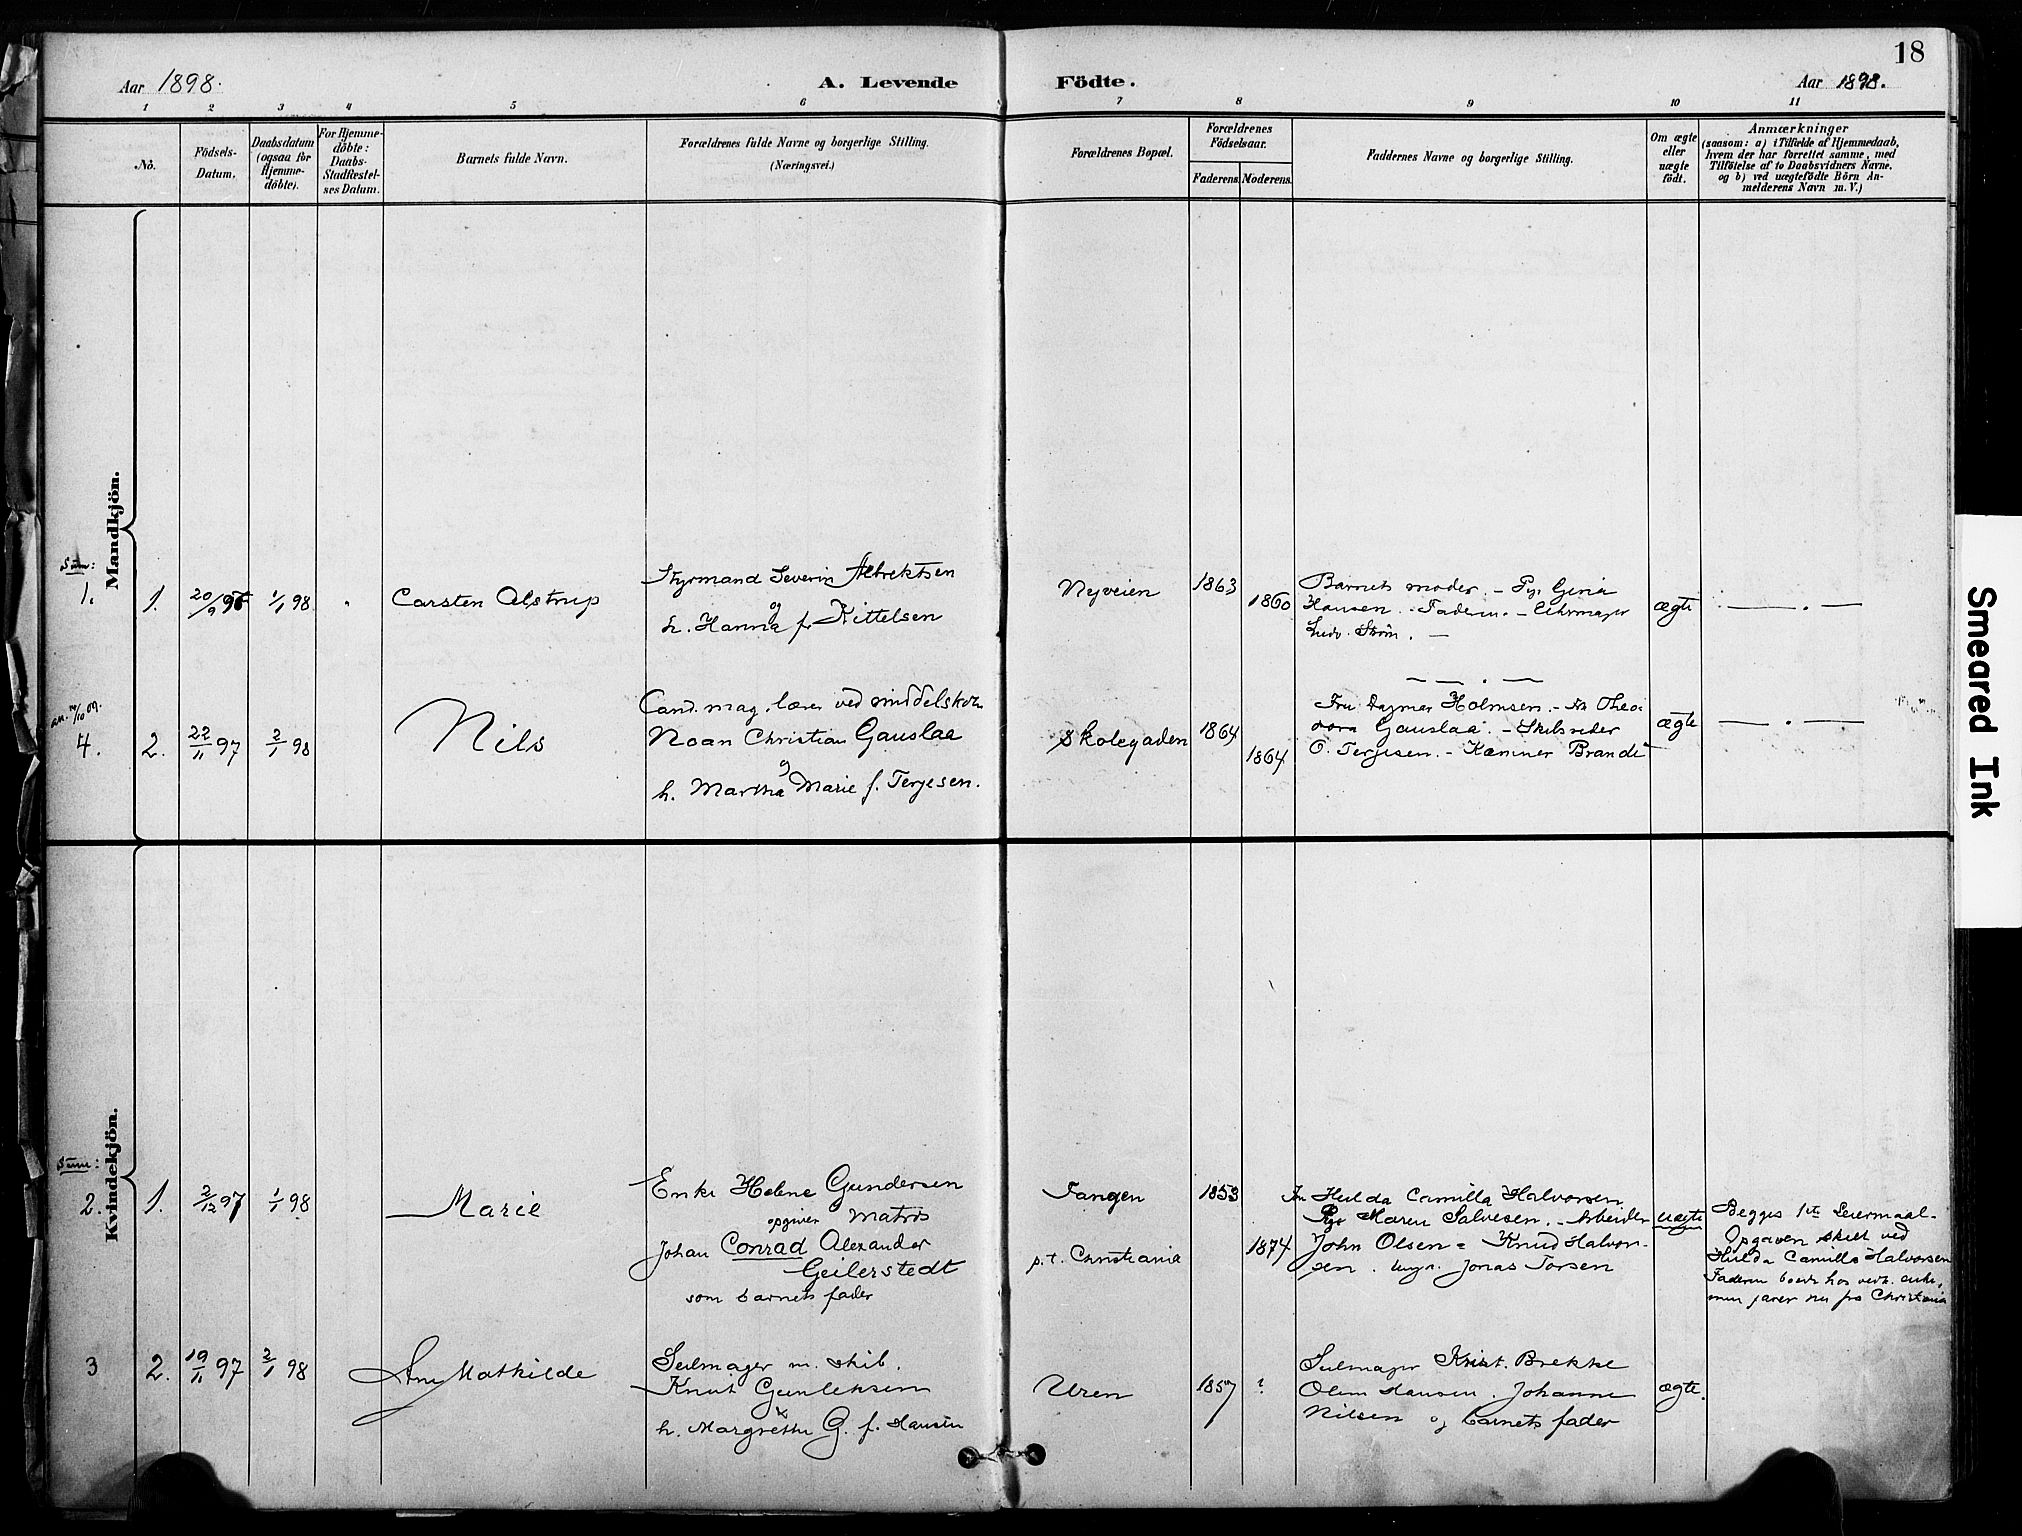 18
Aar 1898. A. Levende Födte. Aar 1898.
1 2 3 4 5 6 7 8 9 10 11
No.
Födsels-
Datum.
Daabsdatum
(ogsaa for
Hjemme-
döbte).
For Hjemme-
döbte:
Daabs-
Stadfæstel-
ses Datum.
Barnets fulde Navn.
Forældrenes fulde Navne og borgerlige Stilling.
(Næringsvei.)
Forældrenes Bopæl.
Forældrenes
Födselsaar.
Faderens. Moderens.
Faddernes Navne og borgerlige Stilling.
Om ægte
eller
uægte
født.
Anmærkninger
(saasom: a) i Tilfælde af Hjemmedaab,
hvem der har forrettet samme, med
Tilföielse af to Daabsvidners Navne,
og b) ved uægtefödte Börn An-
melderens Navn m. V.)
Mandkjön.
Sum:
1. 1. 20/9 1/1 98. Carsten Alstrup
Styrmand Severin Albrektsen
og
h. Hanna f. Kittelsen
Nyveien 1863 1860
Barnets moder. – Pige Gina
Hansen. – Faderen. –
Ludv. Strøm. –
ægte
4. 2. 22/11 97 2/1 98 Nils
Cand. mag. lærer ved middelskolen
Noan Christian Gauslaa
og
h. Martha Marie f. Terjesen.
Skolegaden 1864 1864
Fru Dagmar Holmsen. – Fr. Theo-
dora Gauslaa. – Skibsreder
O. Terjesen. – Kæmner Brandt
ægte
Kvindekjön.
Sum:
2. 1. 2/12 97 1/1 98 Marie
Enke Helene Gundersen
opgiver Matros
Johan Conrad Alexander
Geilerstedt
som barnets fader
Tangen 1853
p.t. Christiania 1874
Fr. Hulda Camilla Halvorsen
Pige Maren Salvesen. – Arbeider
John Olsen = Knud Halvor-
sen. Ungk. Jonas Torsen
uægte
Begges 1ste Leiermaal.
Opgaven skett ved
Hulda Camilla Halvorsen
Faderen boede hos vedk. enke,
men farer nu fra Christiania
3 2. 19/11 97 2/1 98 Ane Mathilde
Seilmager m. skib.
Knut Gunleksen
h. Margrethe G. f. Hansen
Uren 1857 ?
Seilmager Krist. Brekke
Olen Hansen. Johanne
Nilsen og barnets fader
ægte.
Smeared Ink